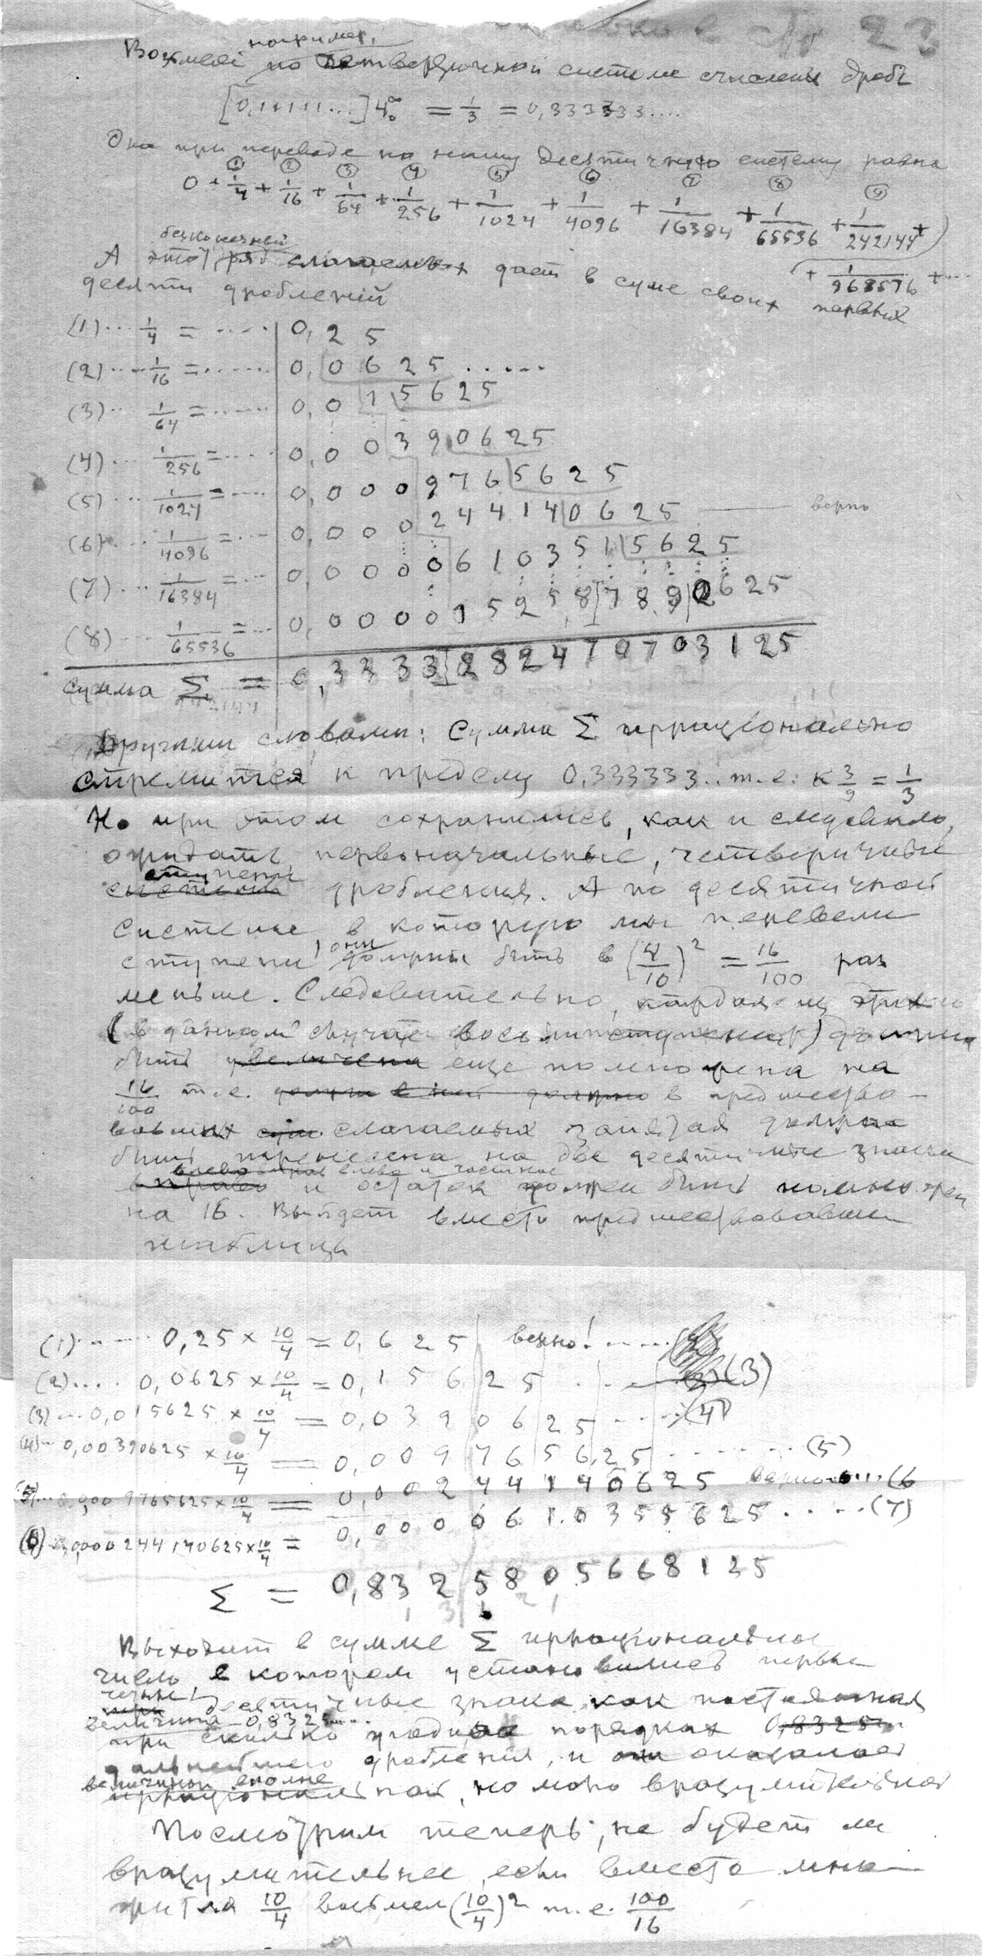 23
например,
Возьмем по четверичной системе счисления дробь
[0,11111...]4 = 1/3 = 0,333333....
Она при переводе на нашу десятичную систему равна
① ② ③ ④ ⑤ ⑥ ⑦ ⑧ ⑨
0 + 1/4 + 1/16 + 1/64 + 1/256 + 1/1024 + 1/4096 + 1/16384 + 1/65536 + 1/242144 +
+ 1/968576 + ...
бесконечный
А этот ряд слагаемых дает в сумме своих первых
десяти дроблений
(1)... 1/4 = ..... 0,25
(2)... 1/16 = ..... 0,0625 ......
(3)... 1/64 = ..... 0,015625
(4)... 1/256 = .... 0,00390625
(5)... 1/1024 = .... 0,0009765625
(6)... 1/4096 = ... 0,000244140625 —— верно
(7)... 1/16384 = ... 0,000061035515625
(8)... 1/65536 = ... 0,0000152587890625
сумма Σ = 0,3333282470703125
Другими словами: Сумма Σ иррационально
стремится к пределу 0,333333.. т.е. к 3/9 = 1/3
Но при этом сохранились, как и следовало
ожидать, первоначальные, четверичные
ступени
системы дробления. А по десятичной
системе, в которую мы перевели
ступени, они должны быть в (4/10)² = 16/100 раз
меньше. Следовательно, каждая из этих
(в данном случае восьми ступеней) должна
быть увеличена еще помножена на
16/100 т.е. в предшество-
вавших слагаемых запятая должна
быть перенесена на две десятичных знака
влево и частное
вправо и остаток должен быть помножен
на 16. Выйдет вместо предшествовавшей
таблицы
(1)..... 0,25 × 10/4 = 0,625 верно! .....
(2).... 0,0625 × 10/4 = 0,15625 ..... (3)
(3)... 0,015625 × 10/4 = 0,0390625 .... (4)
(4).. 0,00390625 × 10/4 = 0,009765625 ....... (5)
(5)... 0,0009765625 × 10/4 = 0,002441440625 верно ....(6
(6) 0,000244140625 × 10/4 = 0,0000610355625 .... (7)
Σ = 0,8325805668125
Выходит в сумме Σ иррациональное
число в котором установились первые
четыре
три десятичные знака, как постоянная
величина 0,8325....
при сколько угодно порядках 0,8325
дальнейшего дробления, и она оказалась
величиной вполне
иррациональной, но мало вразумительной
Посмотрим теперь, не будет ли
вразумительнее, если вместо мно-
жителя 10/4 возьмем (10/4)² т.е. 100/16